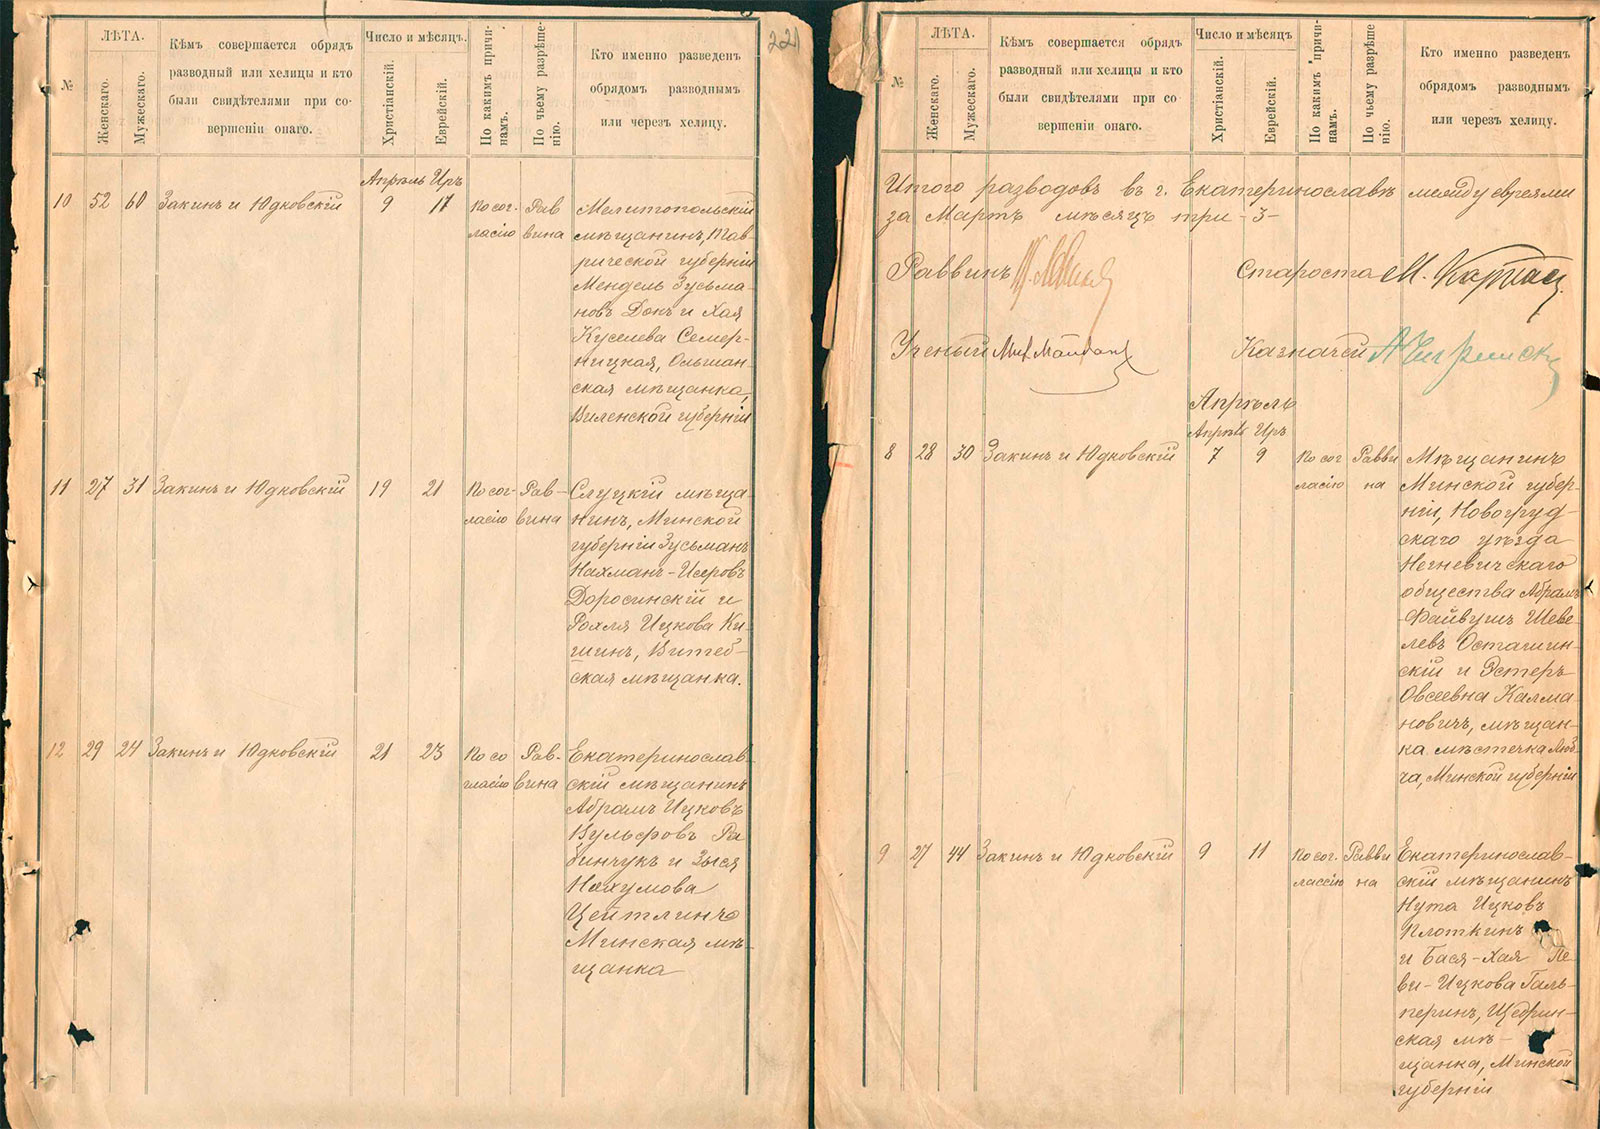 221
№
ЛѢТА.
Женскаго.
Мужескаго.
Кѣмъ совершается обрядъ
разводный или хелицы и кто
были свидѣтелями при со-
вершеніи онаго.
Число и мѣсяцъ.
Христіанскій.
Еврейскій.
По какимъ причи-
намъ.
По чьему разрѣше-
нію.
Кто именно разведенъ
обрядомъ разводнымъ
или черезъ хелицу.
Апрѣль Иръ
10 52 60 Закинъ и Юдковскій 9 17 По сог- Рав
ласію вина
Мелитопольскій
мѣщанинъ, Тав-
рической губерніи
Мендель Зусьма-
новъ Донъ и Хая
Куселева Семер-
ницкая, Ольшан-
ская мѣщанка,
Виленской губерніи
11 27 31 Закинъ и Юдковскій 19 21 По сог- Рав-
ласію вина
Слуцкій мѣща-
нинъ, Минской
губерніи Зусьманъ
Нахманъ-Исеровъ
Доросинскій и
Рохля Ицкова Ки-
шинъ, Витеб-
ская мѣщанка.
12 29 24 Закинъ и Юдковскій 21 23 По со Рав-
гласію вина
Екатеринослав-
скій мѣщанинъ
Абрамъ Ицковъ
Вульфовъ Ра-
бинчукъ и Зыся
Нахумова
Цейтлинъ
Минская мѣ-
щанка
№
ЛѢТА.
Женскаго.
Мужескаго.
Кѣмъ совершается обрядъ
разводный или хелицы и кто
были свидѣтелями при со
вершеніи онаго.
Число и мѣсяцъ
Христіанскій.
Еврейскій.
По какимъ причи-
намъ.
По чьему разрѣше
нію.
Кто именно разведенъ
обрядомъ разводнымъ
или черезъ хелицу.
Итого разводовъ въ г. Екатеринославѣ между евреями
за Мартъ мѣсяцъ три -3-
Раввинъ Староста М. Карпас
Ученый Казначей
Апрѣль
Апрѣль Иръ
8 28 30 Закинъ и Юдковскій 7 9 По сог Равви
ласію на
Мѣщанинъ
Минской губер-
ніи, Новогруд-
скаго уѣзда
Негневичскаго
общества Абрамъ
Файвушъ Шеве-
левъ Осташин-
скій и Эстеръ
Овсеевна Калма
новичъ, мѣщан-
ка мѣстечка Люб-
ча, Минской губерніи
9 27 44 Закинъ и Юдковскій 9 11 По сог. Равви
лассію на
Екатеринослав-
скій мѣщанинъ
Нута Ицковъ
Плоткинъ
и Бася-Хая Ле-
ви-Ицкова Галь-
перинъ, Щедрин-
ская мѣ-
щанка, Минской
губерніи